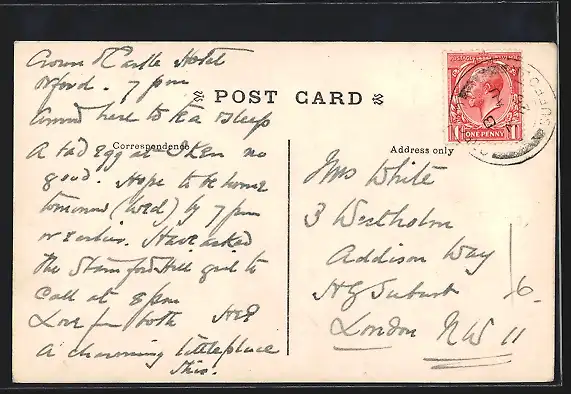 Crown & Castle Hotel
Orford. 7 pm
POST CARD
Arrived here to tea & sleep
Correspondence
Address only
A bad egg at Iken no
good. Hope to be home
tomorrow (Wed) by 7 pm
or earlier. Have asked
the Stamford Hill girl to
call at 8 pm
Love from both
A charming little place
this.
POSTAGE
ONE PENNY
Mrs White
3 Westholm
Addison Way
HG Suburb
6.
London NW 11